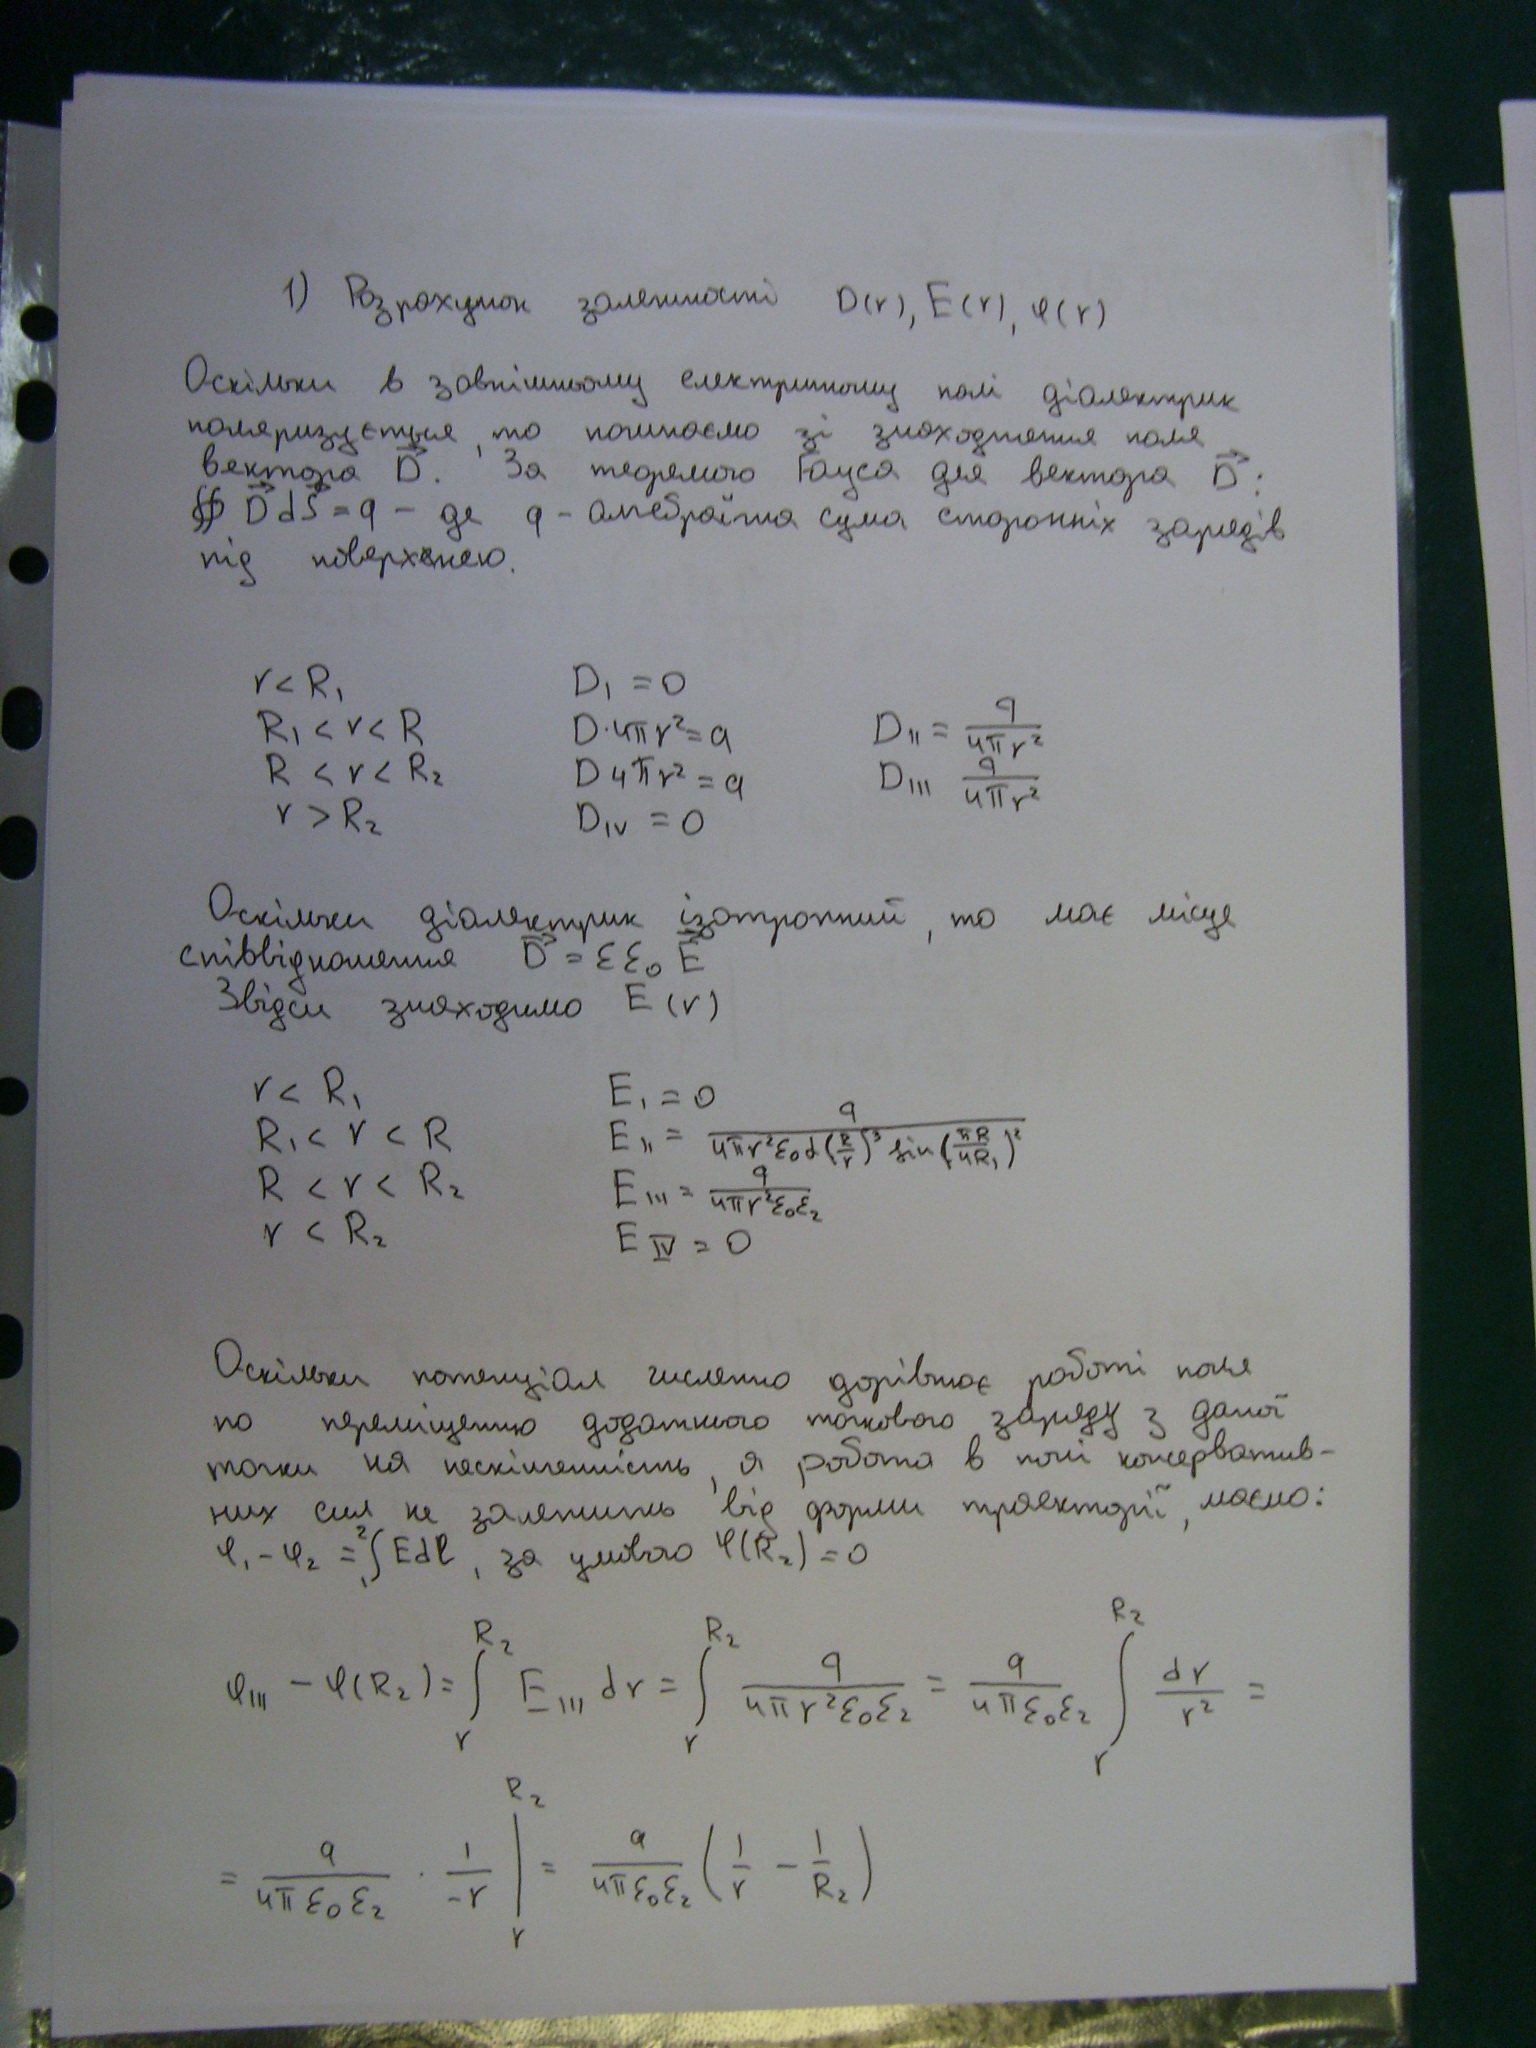 1) Розрахунок залежності D(r), E(r), φ(r)
Оскільки в зовнішньому електричному полі діалектрик
поляризується, то починаємо зі знаходження поля
вектора D⃗. За теоремою Гауса для вектора D⃗:
∯ D⃗ dS⃗ = q – де q – алгебраїчна сума сторонніх зарядів
під поверхнею.
r < R₁ D₁ = 0
R₁ < r < R D·4πr² = q D_II = q/(4πr²)
R < r < R₂ D4πr² = q D_III q/(4πr²)
r > R₂ D_IV = 0
Оскільки діалектрик ізотропний, то має місце
співвідношення D⃗ = εε₀E⃗
Звідси знаходимо E(r)
r < R₁ E_I = 0
R₁ < r < R E_II = q/(4πr²ε₀α(R/r)³ sin(πR/4R₁)²)
R < r < R₂ E_III = q/(4πr²ε₀ε₂)
r < R₂ E_IV = 0
Оскільки потенціал численно дорівнює роботі поля
по переміщенню додатного точкового заряду з даної
точки на нескінченність, а робота в полі консерватив-
них сил не залежить від форми траекторії, маємо:
φ₁ – φ₂ = ₁∫² Edl, за умовою φ(R₂) = 0
φ_III – φ(R₂) = ∫ᵣ^R₂ E_III dr = ∫ᵣ^R₂ q/(4πr²ε₀ε₂) = q/(4πε₀ε₂) ∫ᵣ^R₂ dr/r² =
= q/(4πε₀ε₂) · 1/(-r) |ᵣ^R₂ = q/(4πε₀ε₂) (1/r – 1/R₂)